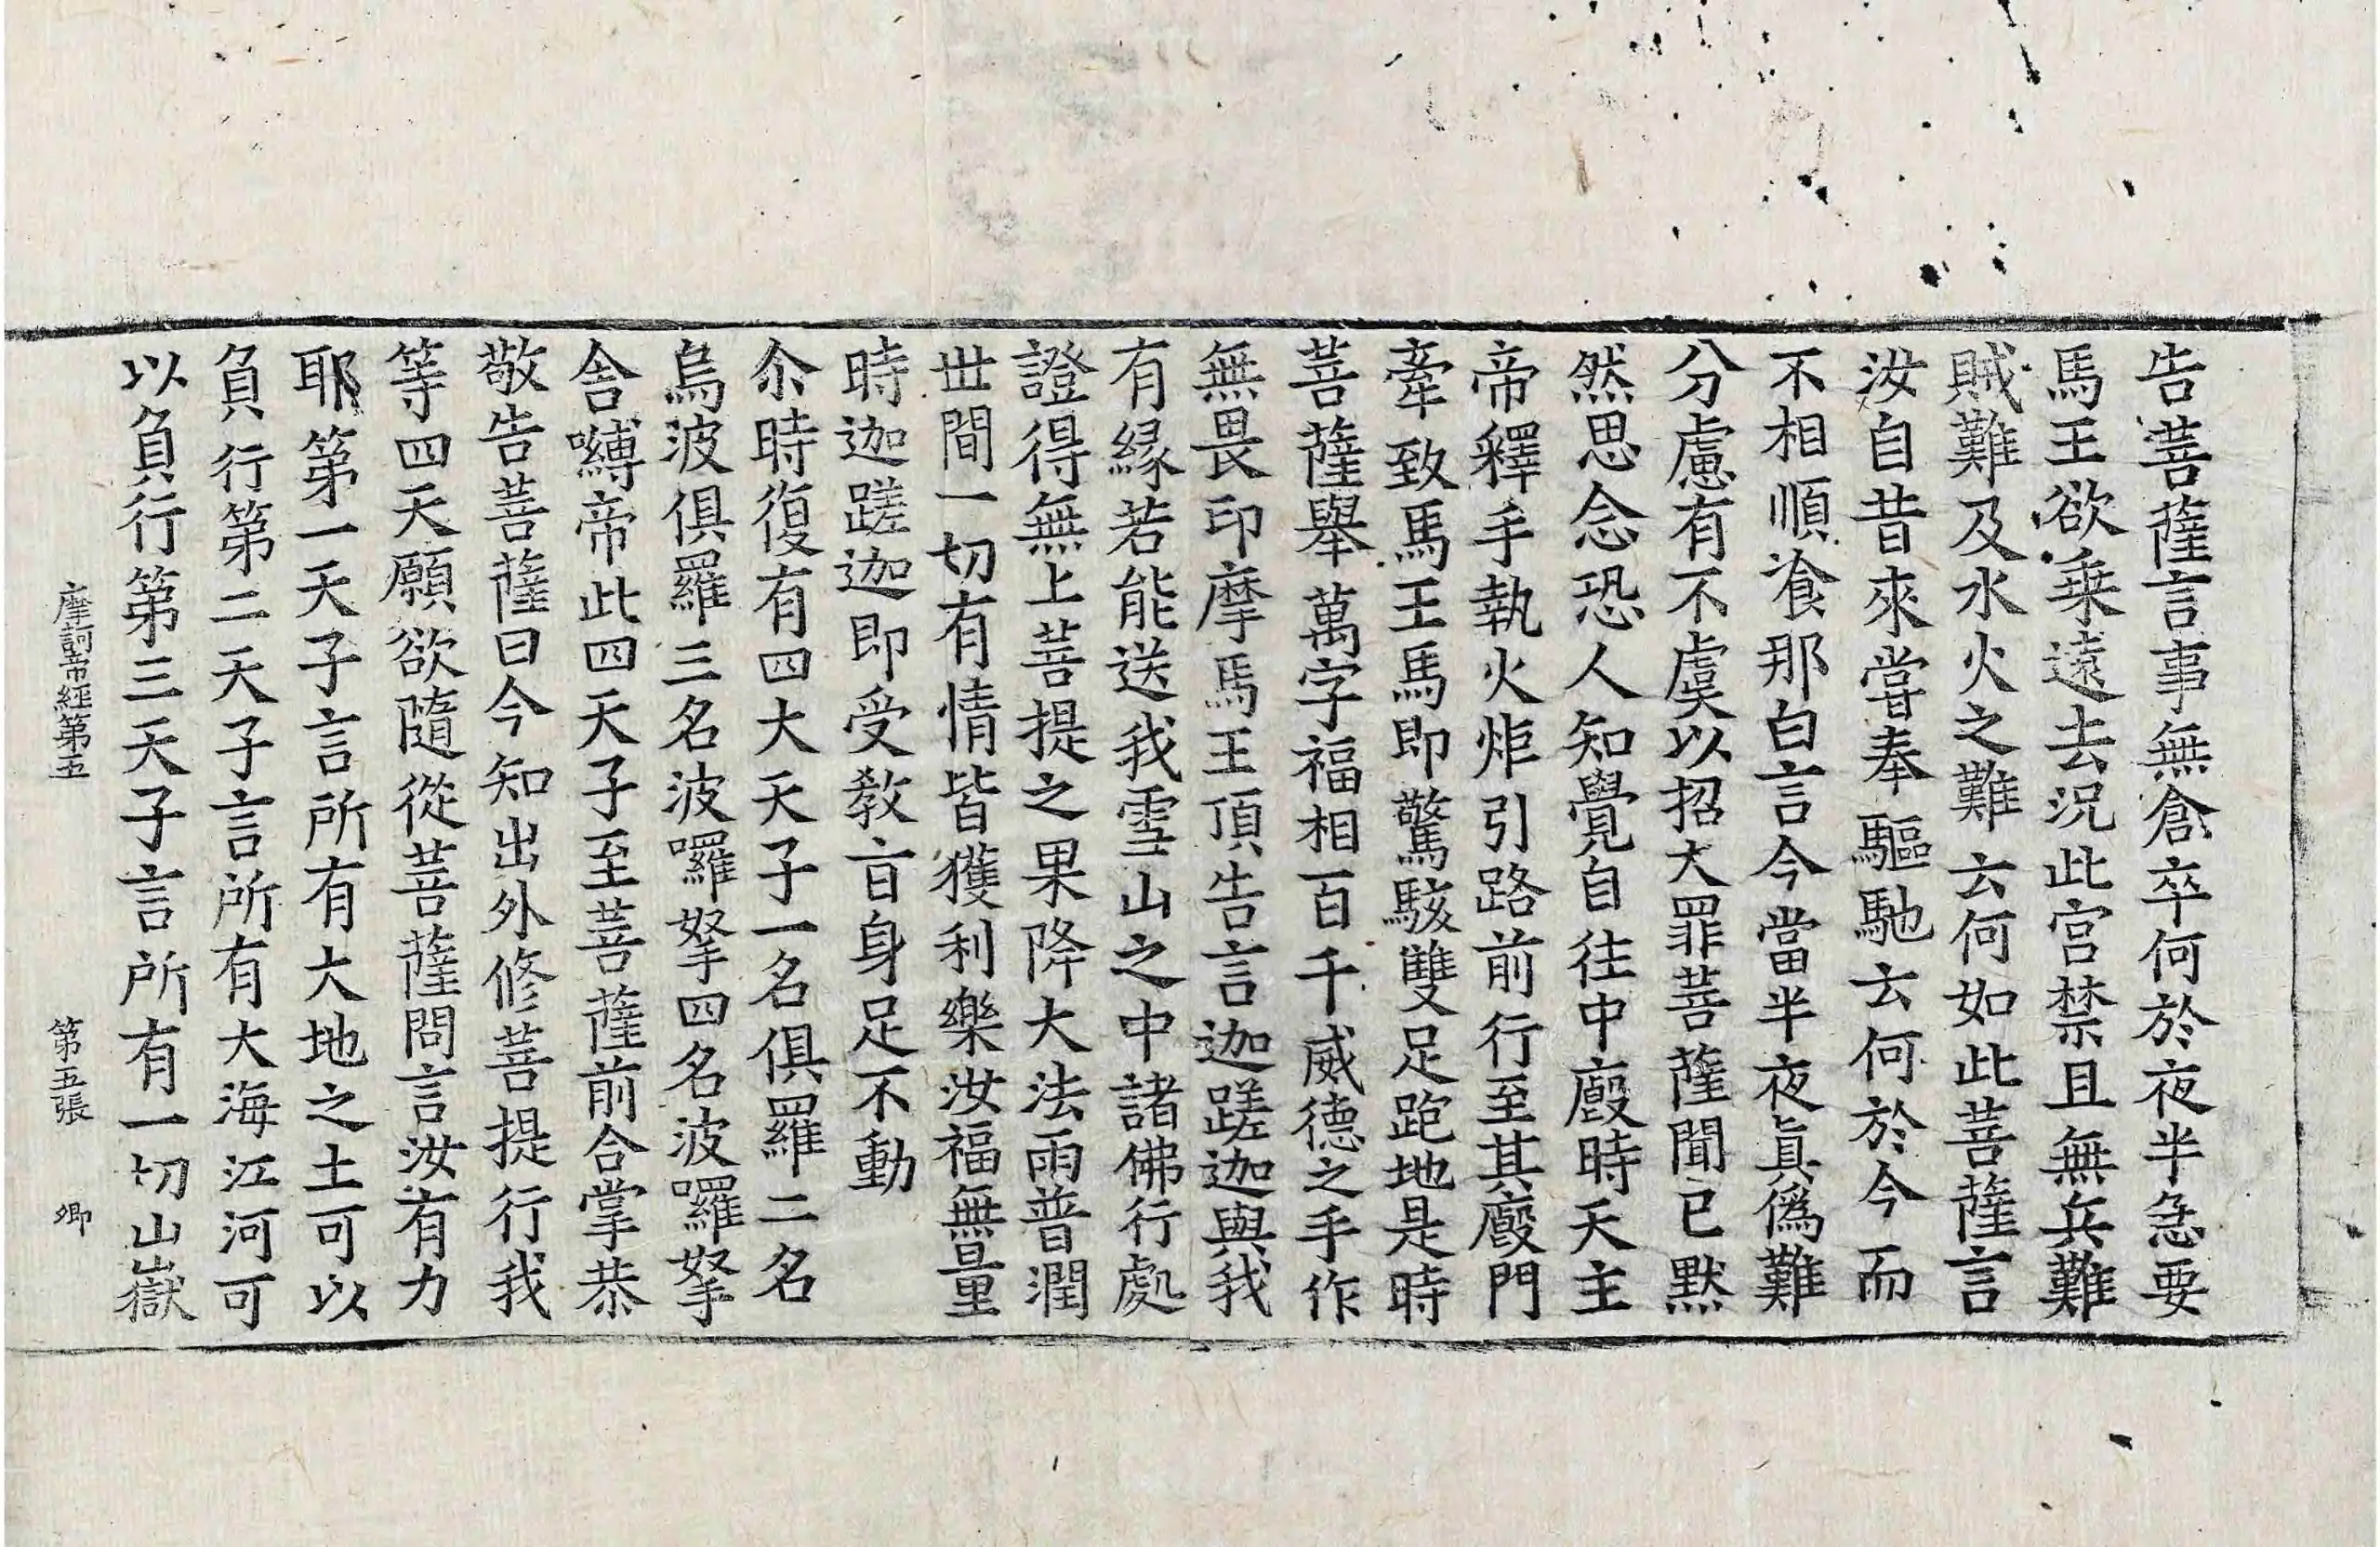 告菩薩言事無倉卒何於夜半急要
馬王欲乗遠去況此宮禁且無兵難
賊難及水火之難云何如此菩薩言
汝自昔來嘗奉驅馳云何於今而
不相順飡那白言今當半夜眞僞難
分慮有不虞以招大罪菩薩聞已默
然思念恐人知覺自往中廄時天主
帝釋手執火炬引路前行至其廄門
牽致馬王馬即驚駭雙足跑地是時
菩薩舉萬字福相百千威德之手作
無畏印摩馬王頂告言迦蹉迦與我
有縁若能送我雪山之中諸佛行處
證得無上菩提之果降大法雨普潤
世間一切有情皆獲利樂汝福無量
時迦蹉迦即受敎旨身足不動
尒時復有四大天子一名俱羅二名
烏波俱羅三名波囉拏四名波囉拏
舍嚩帝此四天子至菩薩前合掌恭
敬告菩薩曰今知出外修菩提行我
等四天願欲隨從菩薩問言汝有力
耶第一天子言所有大地之土可以
負行第二天子言所有大海江河可
以負行第三天子言所有一切山嶽
摩訶帝經第五 第五張 卿